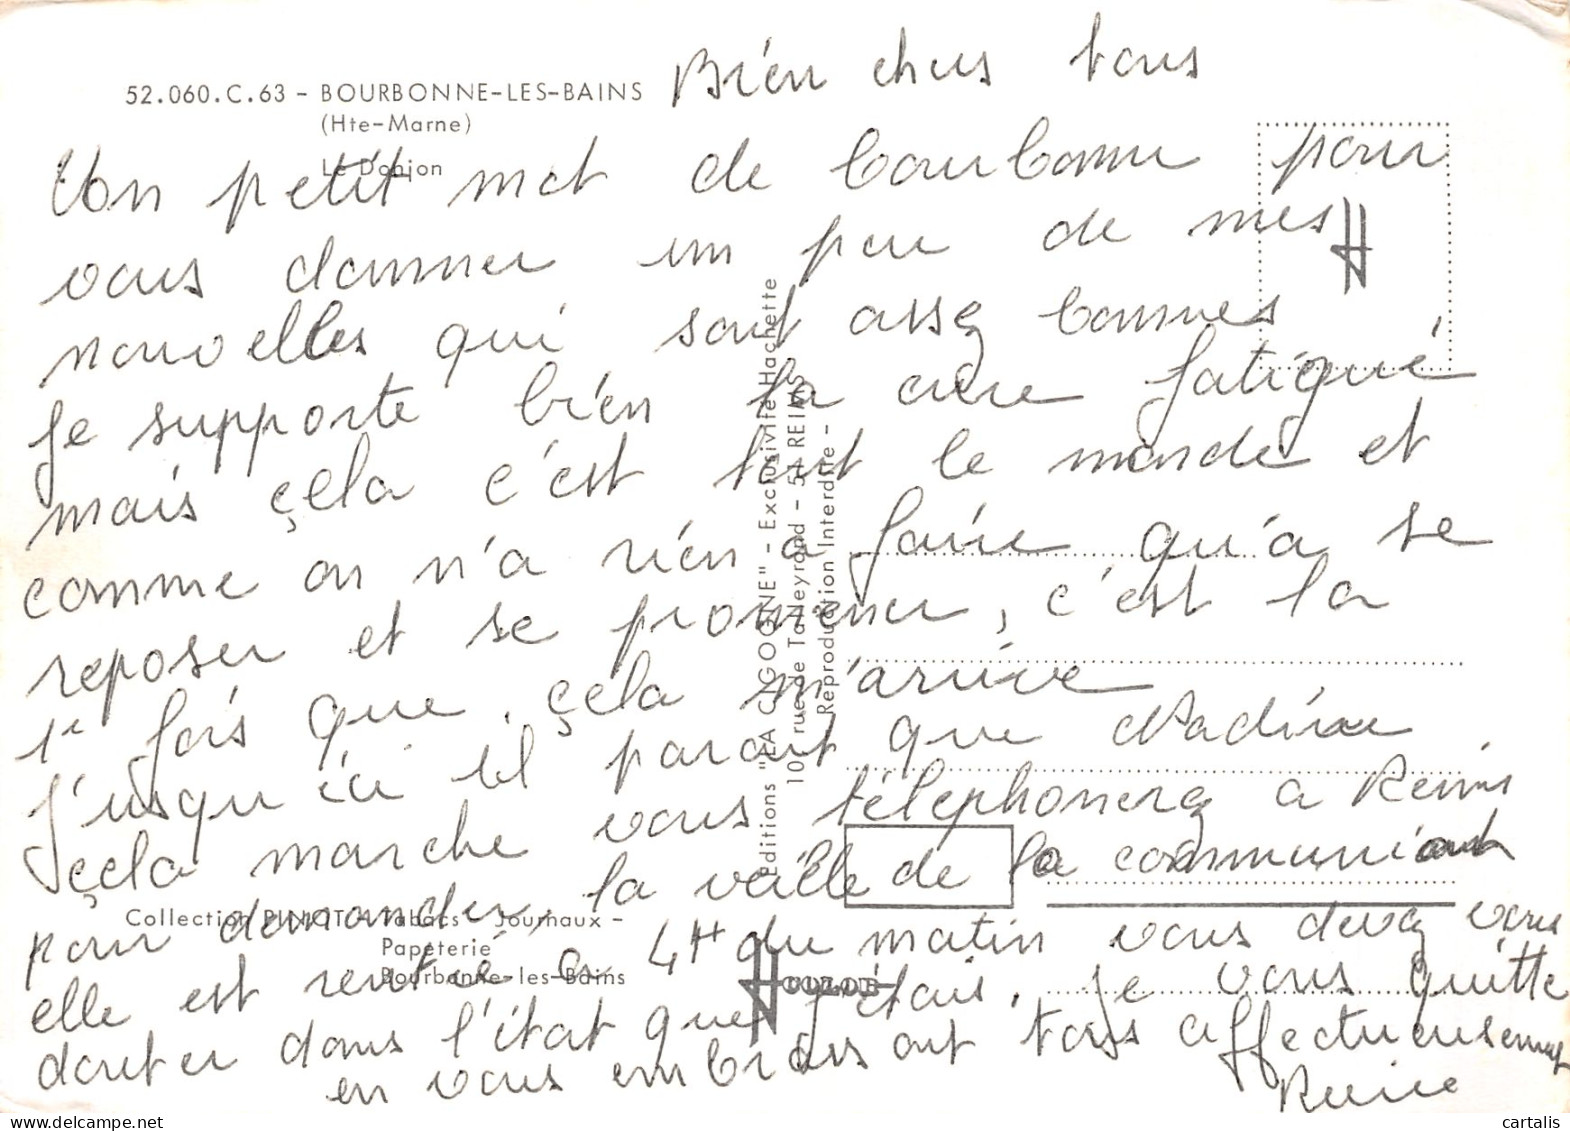 52.060.C.63 - BOURBONNE-LES-BAINS
(Hte-Marne)
Le Donjon
Bien chers tous
Un petit mot de bourbonne pour
vous donner un peu de mes
nouvelles qui sont assez bonnes
je supporte bien la cure fatigué
mais çela c'est tout le monde et
comme on n'a rien a faire qu'a se
reposer et se promener, c'est la
1e fois que çela m'arrive
jusqu'ici il parait que Nadine
çela marche vous télephonerez a Reims
pour demander, la veille de la communion
elle est rentré à 4H du matin vous devez vous
douter dans l'état que j'étais, je vous quitte
en vous embrassant tous affectueusement
Reine
Editions "LA CIGOGNE" - Exclusivité Hachette
101 rue de Talleyrand - 51 REIMS
- Reproduction Interdite -
Collection PINOT - Tabacs - Journaux -
Papeterie
Bourbonne-les-Bains
cartalis